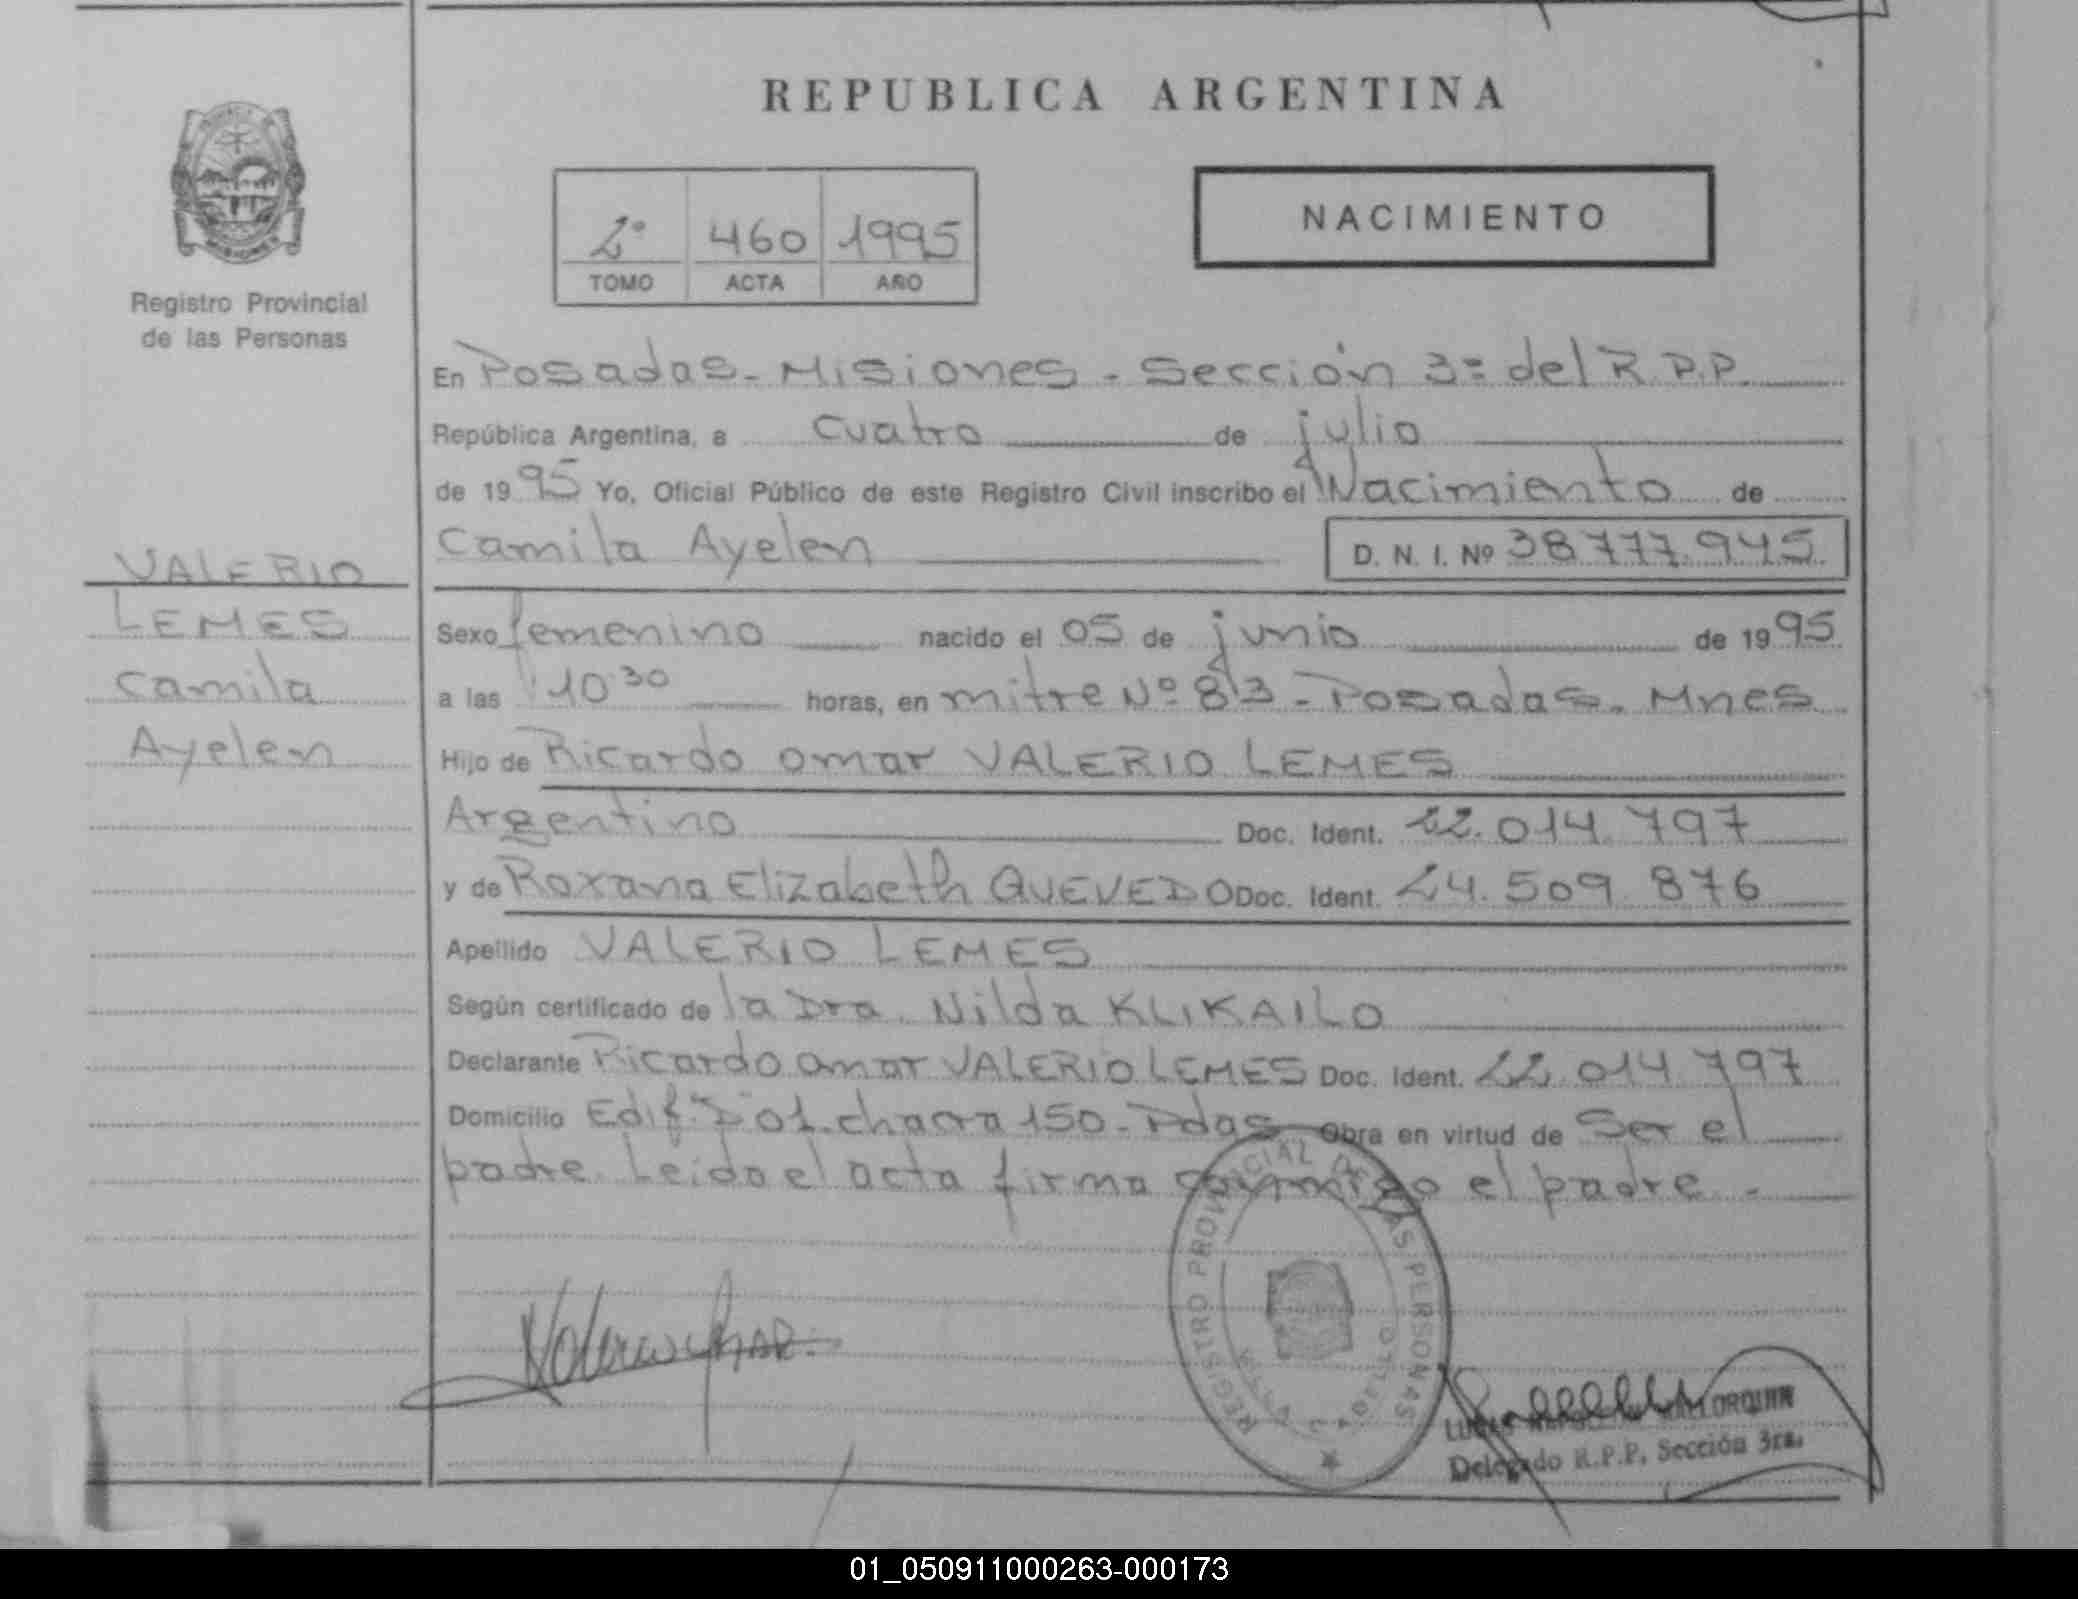 REPUBLICA ARGENTINA
Registro Provincial
de las Personas
2º 460 1995
TOMO ACTA AÑO
NACIMIENTO
VALERIO
LEMES
Camila
Ayelen
En Posadas - Misiones - Sección 3ª del R.P.P.
República Argentina, a cuatro de julio
de 1995 Yo, Oficial Público de este Registro Civil inscribo el Nacimiento de
Camila Ayelen D. N. I. Nº 38.777.945
Sexo femenino nacido el 05 de junio de 1995
a las 10 30 horas, en mitre Nº 813 - Posadas. Mnes
Hijo de Ricardo Omar VALERIO LEMES
Argentino Doc. Ident. 22.014.797
y de Roxana Elizabeth QUEVEDO Doc. Ident. 24.509.876
Apellido VALERIO LEMES
Según certificado de la Dra. Nilda KLIKAILO
Declarante Ricardo Omar VALERIO LEMES Doc. Ident. 22.014.797
Domicilio Edif. D 01. chacra 150 - Pdas Obra en virtud de Ser el
padre. Leida el acta firma conmigo el padre -
REGISTRO PROVINCIAL DE LAS PERSONAS
Delegado R.P.P. Sección 3ra.
01_050911000263-000173